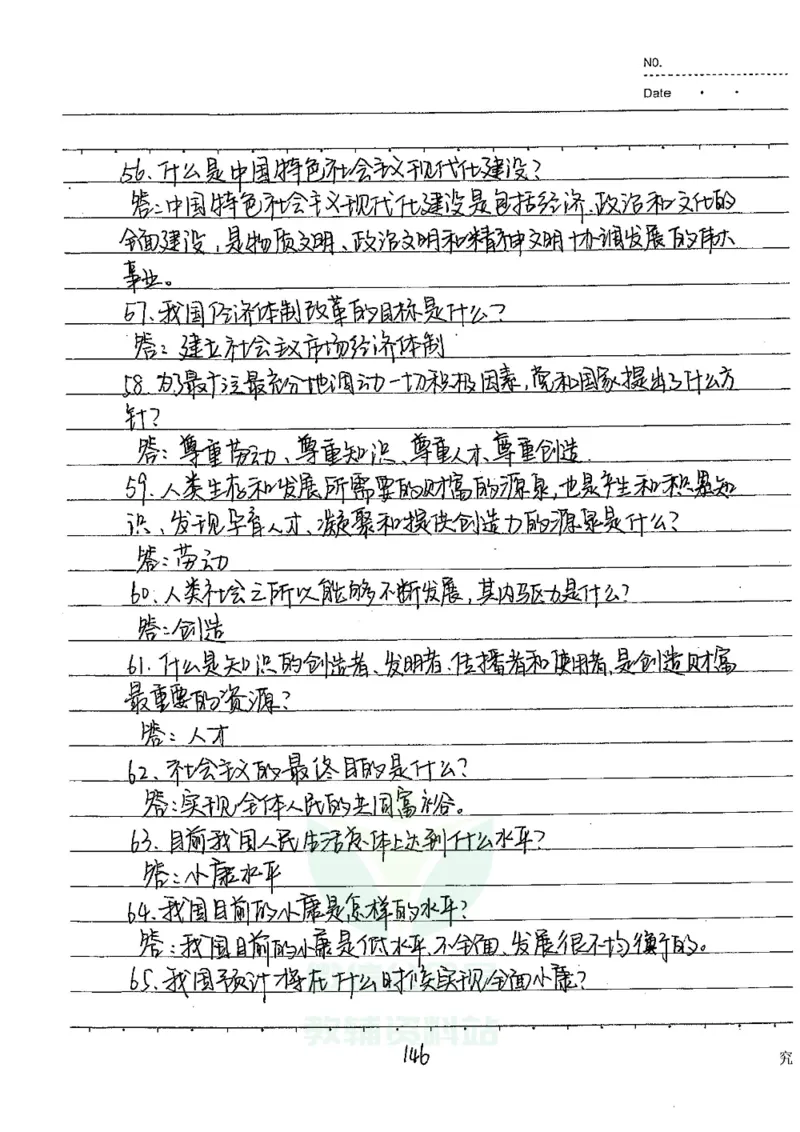 NO.
Date
56、什么是中国特色社会主义现代化建设?
答:中国特色社会主义现代化建设是包括经济、政治和文化的
全面建设,是物质文明、政治文明和精神文明协调发展的伟大
事业。
57、我国经济体制改革的目标是什么?
答:建立社会主义市场经济体制
58、为了最广泛最充分地调动一切积极因素,党和国家提出了什么方
针?
答:尊重劳动、尊重知识、尊重人才、尊重创造.
59、人类生存和发展所需要的财富的源泉,也是产生和积累知
识、发现孕育人才、凝聚和提供创造力的源泉是什么?
答:劳动
60、人类社会之所以能够不断发展,其内驱力是什么?
答:创造
61、什么是知识的创造者、发明者、传播者和使用者,是创造财富
最重要的资源?
答:人才
62、社会主义的最终目的是什么?
答:实现全体人民的共同富裕。
63、目前我国人民生活总体上达到什么水平?
答:小康水平
64、我国目前的小康是怎样的水平?
答:我国目前的小康是低水平、不全面、发展很不均衡的。
65、我国预计将在什么时候实现全面小康?
教辅资料站
146
究